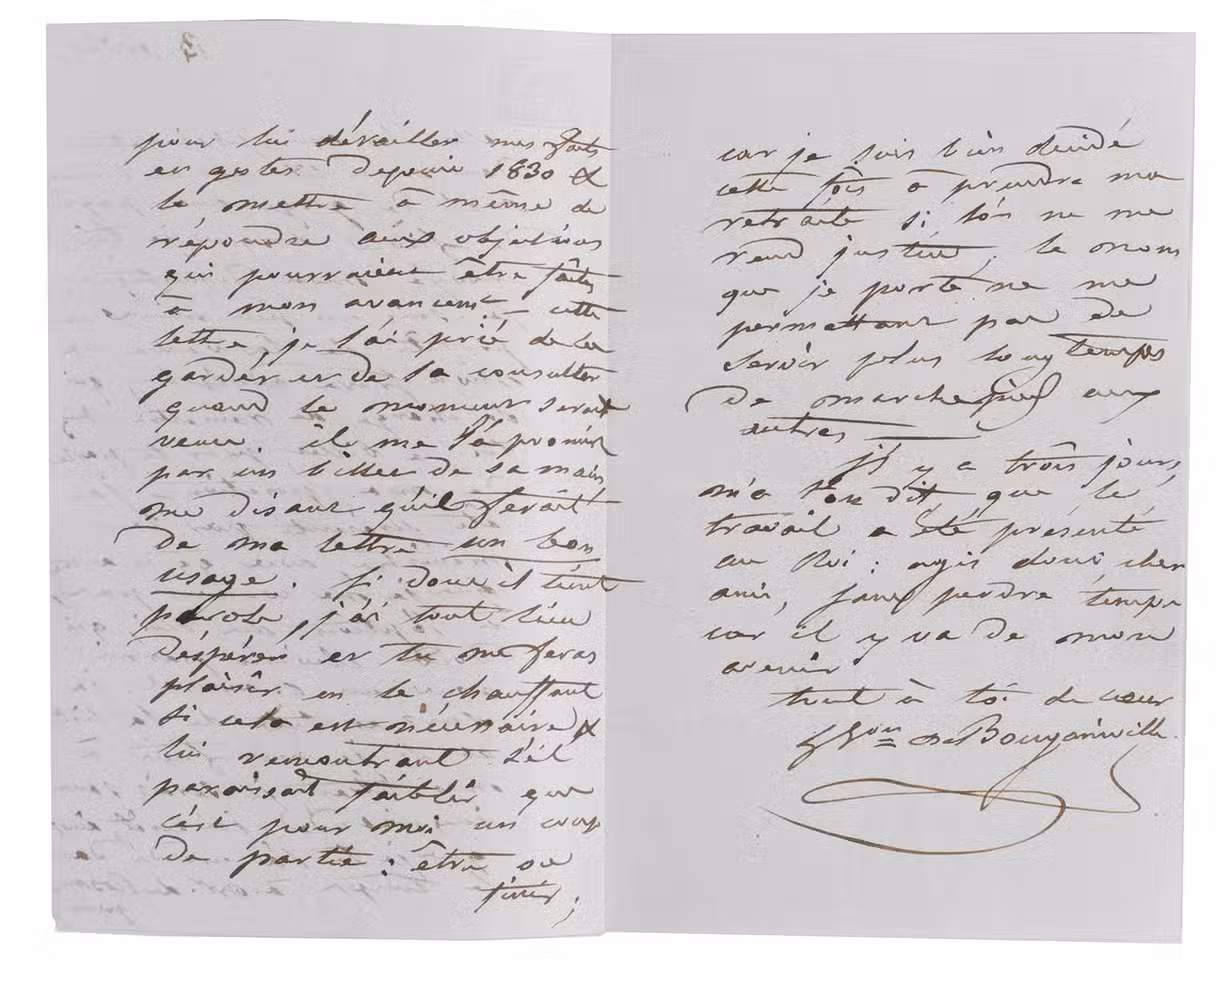 3
pour lui détailler mes faits
et gestes depuis 1830 &
le mettre à même de
répondre aux objections
qui pourraient être faites
à mon avancemt — cette
lettre, je l'ai prié de la
garder et de la consulter
quand le moment serait
venu. il me l'a promis
par un billet de sa main
me disant qu'il ferait
de ma lettre un bon
usage. Si donc il tient
parole, j'ai tout lieu
d'espérer et tu me feras
plaisir en le chauffant
si cela est nécessaire &
lui remontrant s'il
paraissait faiblir que
c'est pour moi un coup
de partie : être ou
finir ;
car je suis bien décidé
cette fois à prendre ma
retraite si l'on ne me
rend justice ; le nom
que je porte ne me
permettant pas de
servir plus longtemps
de marchepied aux
autres —
Il y a trois jours,
m'a t'on dit, que le
travail a été présenté
au Roi : agis donc cher
ami, sans perdre temps
car il y va de mon
avenir
tout à toi de cœur
de Bougainville.